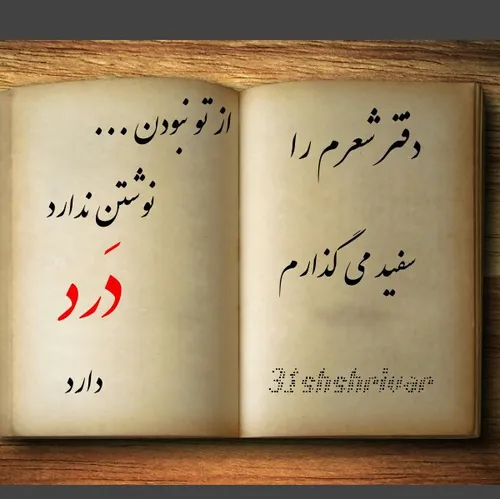 دفتر شعرم را
سفید می گذارم
3ishshrivar
از تو نبودن ...
نوشتن ندارد
دَرد
دارد